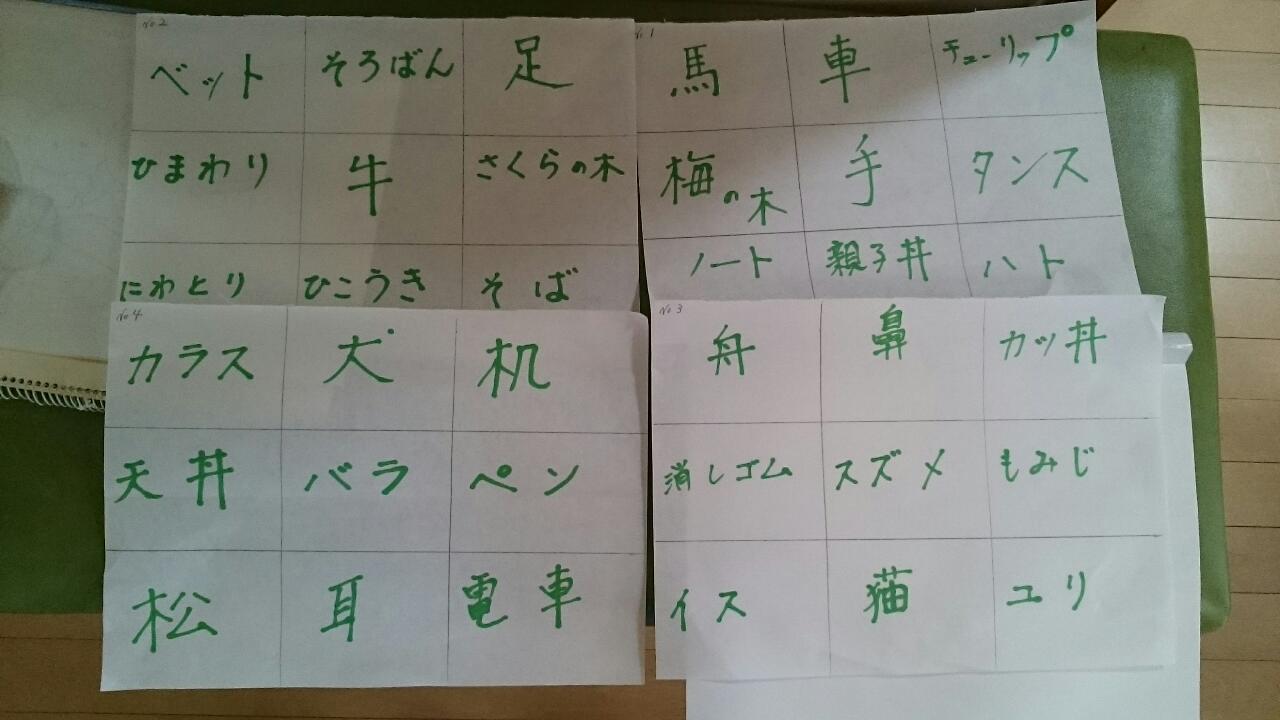 No 2
ベット そろばん 足
ひまわり 牛 さくらの木
にわとり ひこうき そば
No 1
馬 車 チューリップ
梅の木 手 タンス
ノート 親子丼 ハト
No 4
カラス 犬 机
天丼 バラ ペン
松 耳 電車
No 3
舟 鼻 カッ丼
消しゴム スズメ もみじ
イス 猫 ユリ